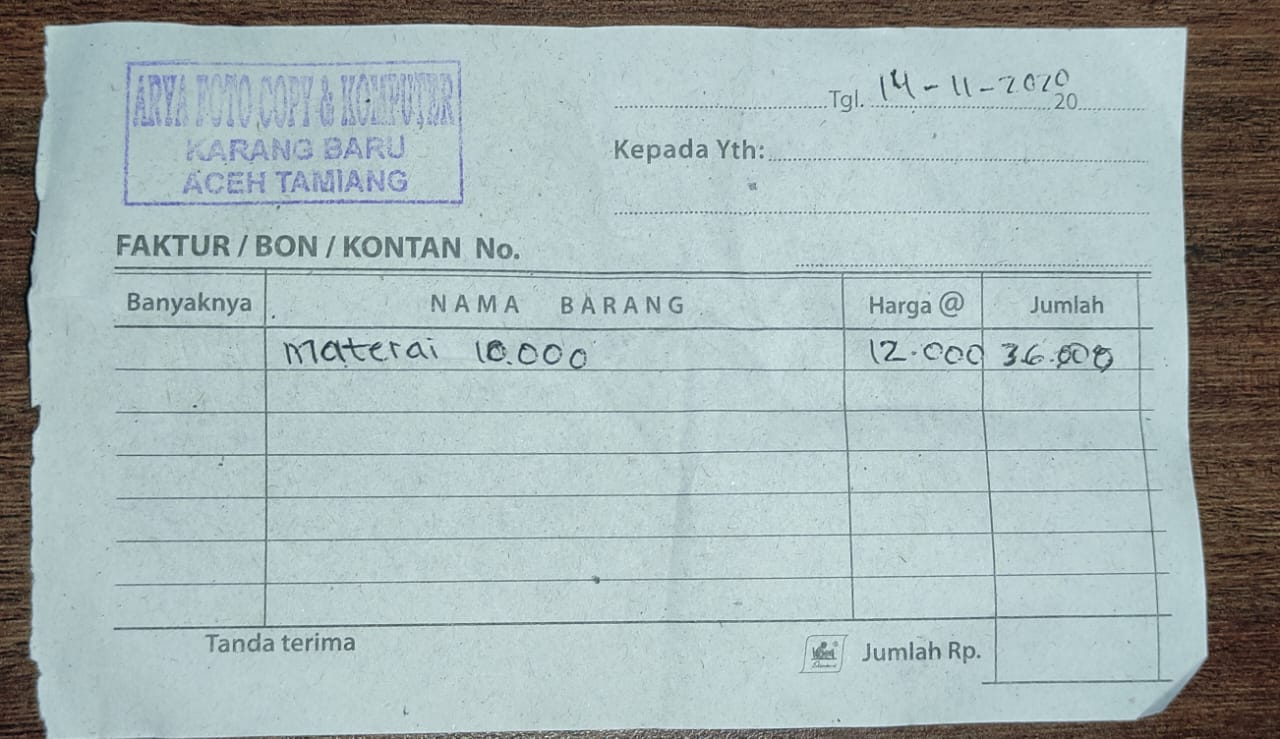 ARYA FOTO COPY & KOMPUTER
KARANG BARU
ACEH TAMIANG
Tgl. 14-11-2020
20
Kepada Yth:
FAKTUR / BON / KONTAN No.
Banyaknya NAMA BARANG Harga @ Jumlah
Materai 10.000 12.000 36.000
Tanda terima Jumlah Rp.